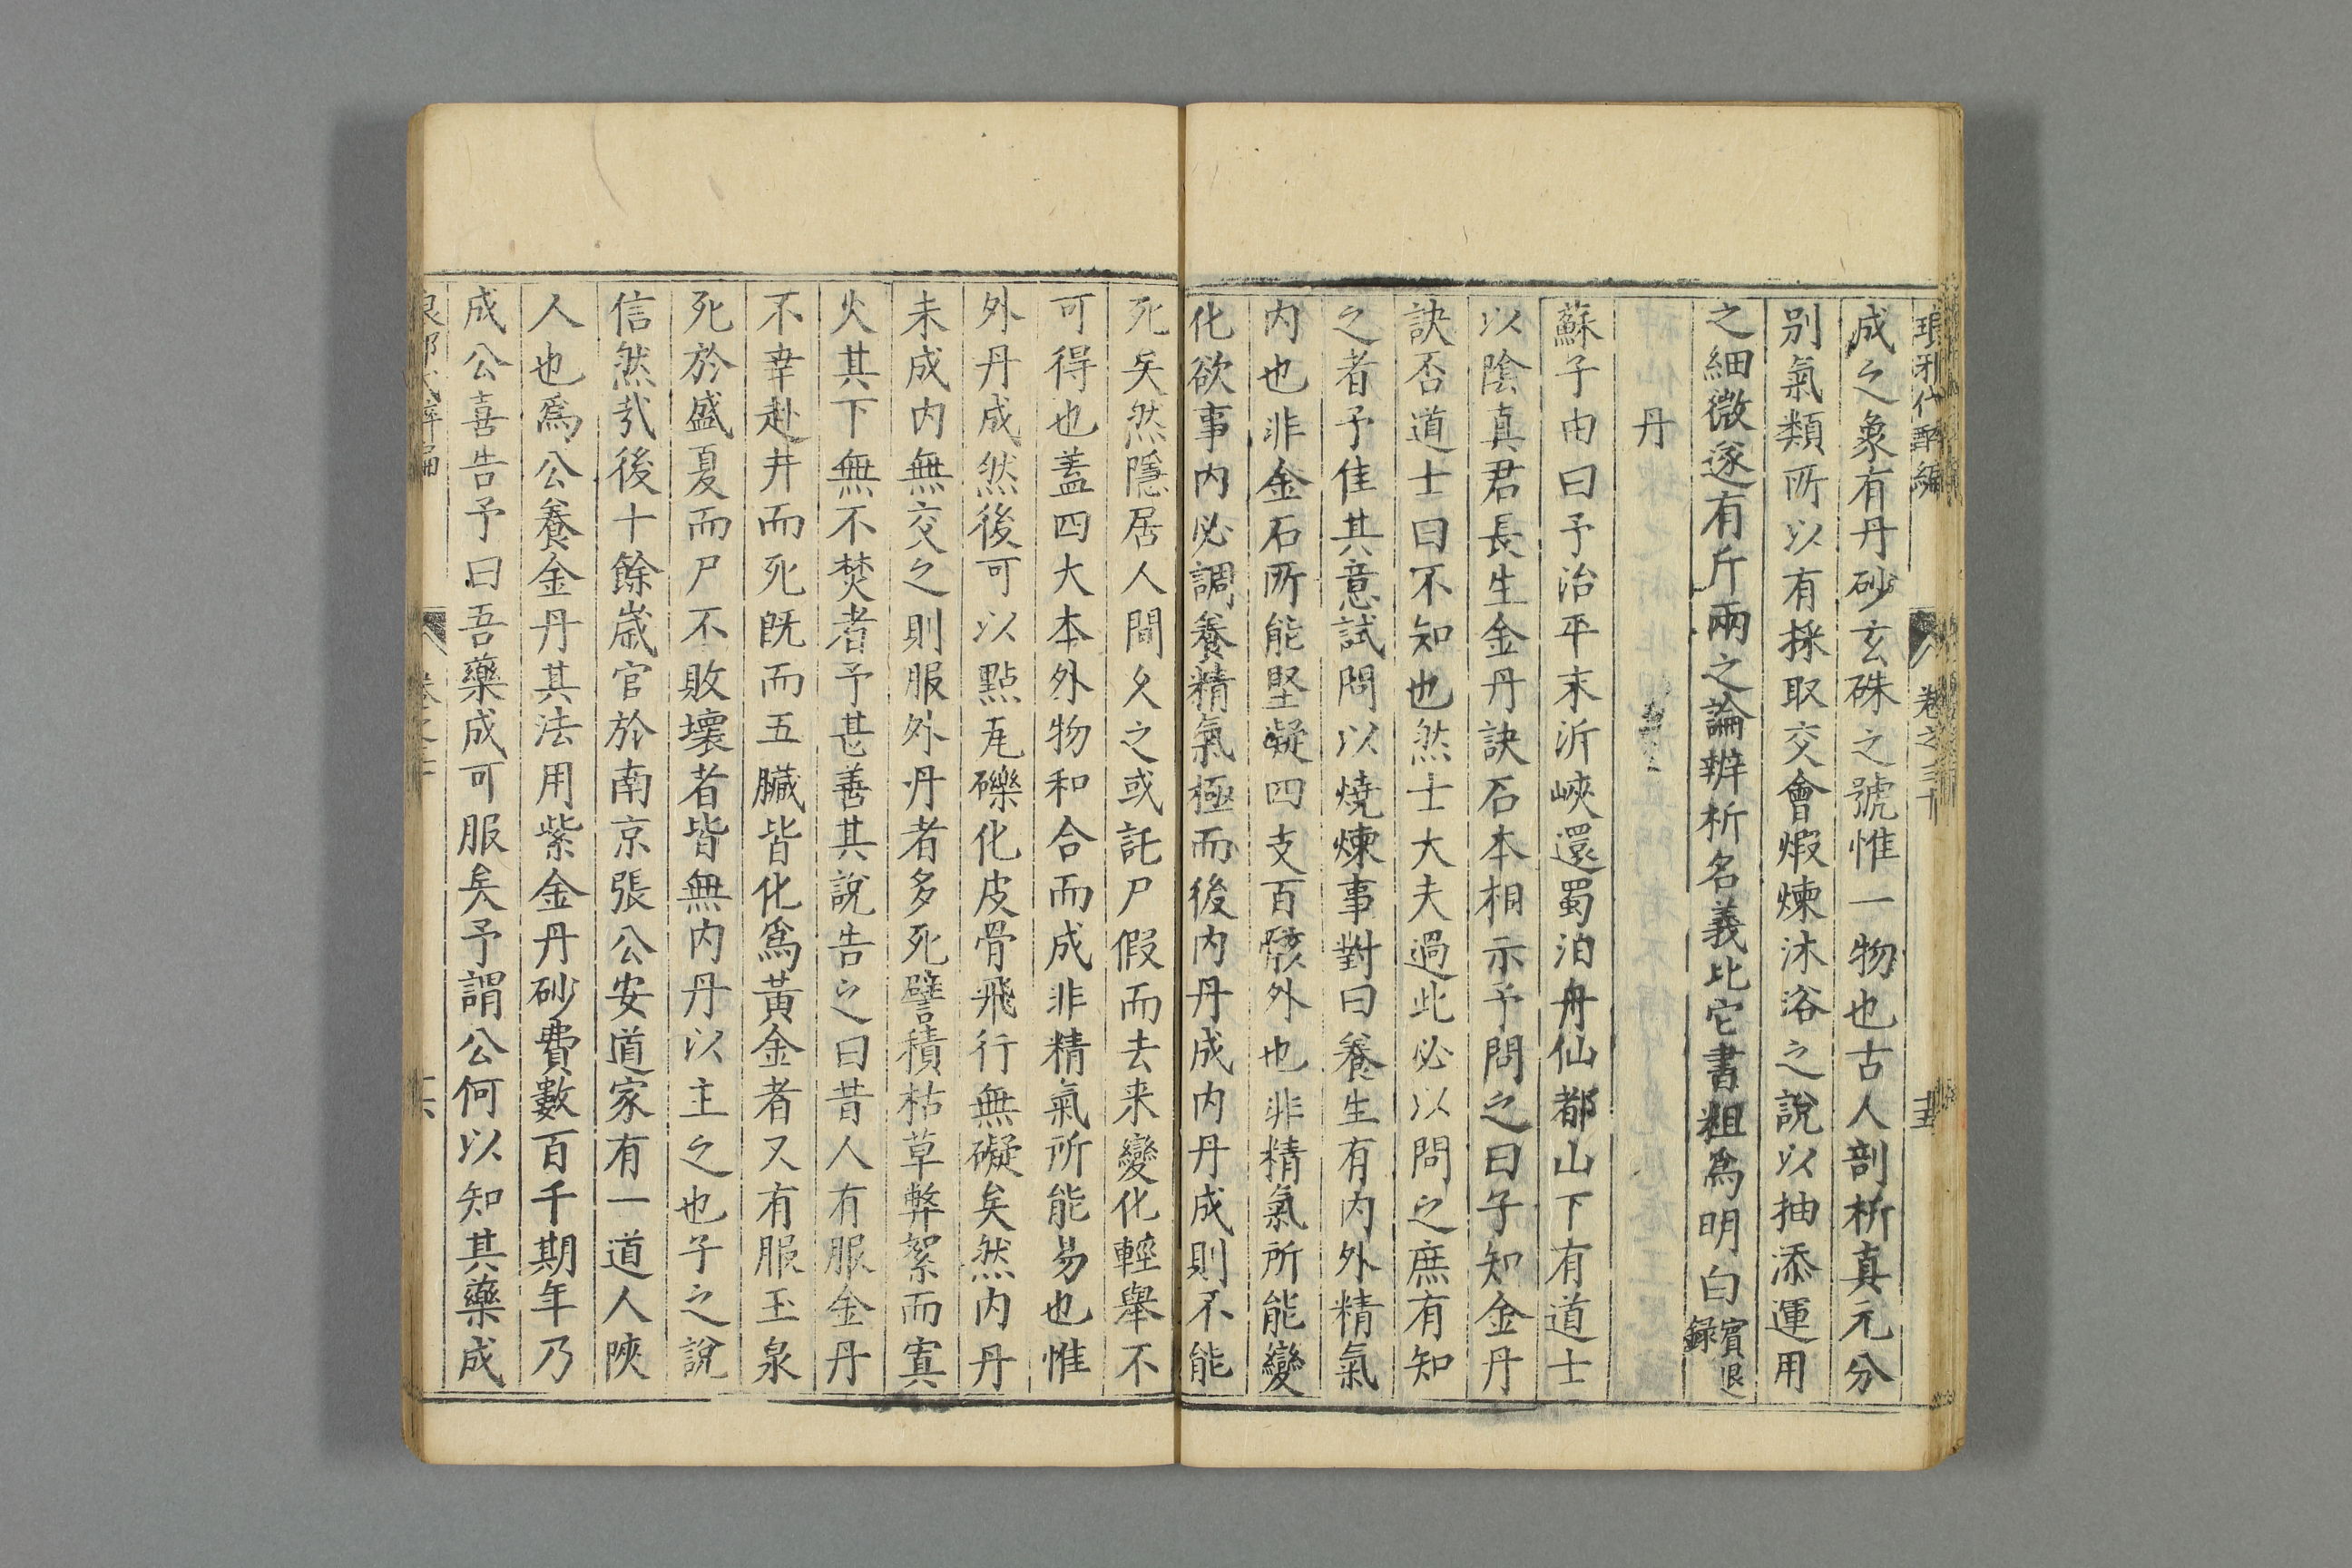 成之象有丹砂玄硃之號惟一物也古人剖析真元分
别氣類所以有採取交會煆煉沐浴之說以抽添運用
之細微遂有斤兩之論辨析名義比它書粗爲明白賓退錄
丹
蘇子由曰予治平末沂峽還蜀泊舟仙都山下有道士
以陰真君長生金丹訣石本相示予問之曰子知金丹
訣否道士曰不知也然士大夫過此必以問之庶有知
之者予佳其意試問以燒煉事對曰養生有内外精氣
内也非金石所能堅凝四支百骸外也非精氣所能變
化欲事内必調養精氣極而後内丹成内丹成則不能
死矣然隱居人間久之或託尸假而去来變化輕舉不
可得也蓋四大本外物和合而成非精氣所能易也惟
外丹成然後可以點瓦礫化皮骨飛行無礙矣然内丹
未成内無交之則服外丹者多死譬積枯草弊絮而寘
火其下無不焚者予甚善其說告之曰昔人有服金丹
不幸赴井而死既而五臟皆化爲黃金者又有服玉泉
死於盛夏而尸不敗壞者皆無内丹以主之也子之說
信然㢤後十餘歲官於南京張公安道家有一道人陝
人也爲公養金丹其法用紫金丹砂費數百千期年乃
成公喜告予曰吾藥成可服矣予謂公何以知其藥成